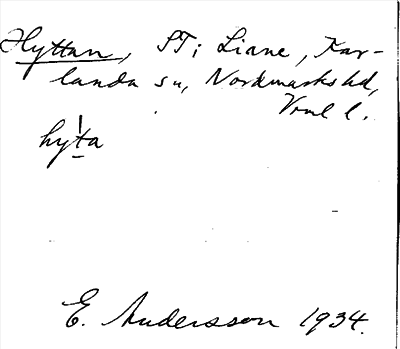 Hyttan, ST; Liane, Kar-
landa sn, Nordmarks hd,
Vrml l.
hyta
E. Andersson 1934.